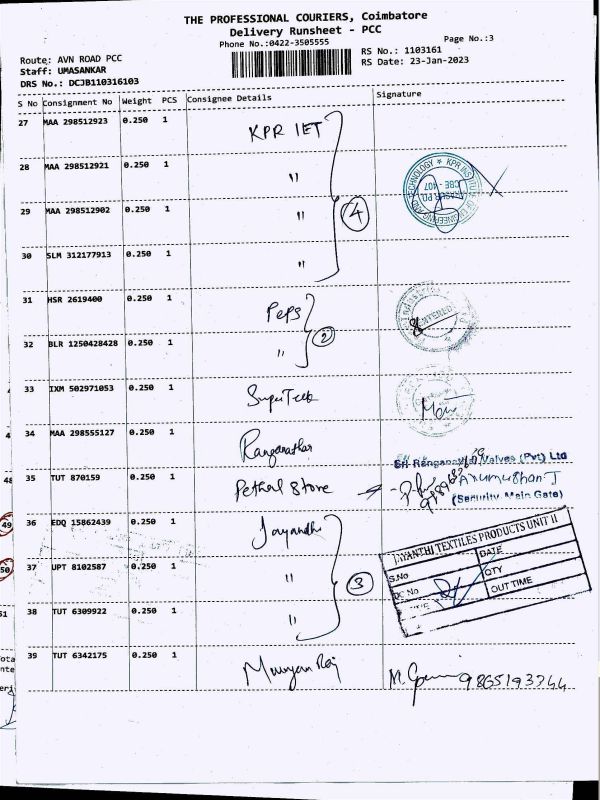 THE PROFESSIONAL COURIERS, Coimbatore
Delivery Runsheet - PCC
Phone No.:0422-3505555
Page No.:3
Route: AVN ROAD PCC
Staff: UMASANKAR
DRS No.: DCJB110316103
RS No.: 1103161
RS Date: 23-Jan-2023
S No Consignment No Weight PCS Consignee Details Signature
27 MAA 298512923 0.250 1 KPR IET
28 MAA 298512921 0.250 1 "
29 MAA 298512902 0.250 1 " 4
30 SLM 312177913 0.250 1 "
KPR INSTITUTE OF ENGINEERING AND TECHNOLOGY
CBE - 407
31 HSR 2619400 0.250 1 Peps
32 BLR 1250428428 0.250 1 " 2
ENTERED
33 IXM 502971053 0.250 1
34 MAA 298555127 0.250 1 Ranganathar
Sri Ranganathar Valves (Pvt) Ltd
35 TUT 870159 0.250 1 Pethal Store
(Security Main Gate)
36 EDQ 15862439 0.250 1 Jayandhi
37 UPT 8102587 0.250 1 " 3
38 TUT 6309922 0.250 1 "
JAYANTHI TEXTILES PRODUCTS UNIT II
S.No DATE
DC No QTY
OUT TIME
39 TUT 6342175 0.250 1
9865193344
48
49
50
51